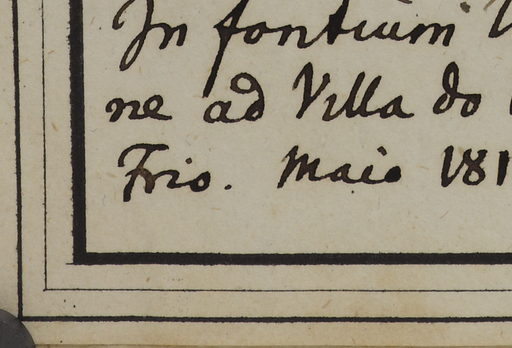 In fontium
ne ad Villa do
Frio. Maio 181